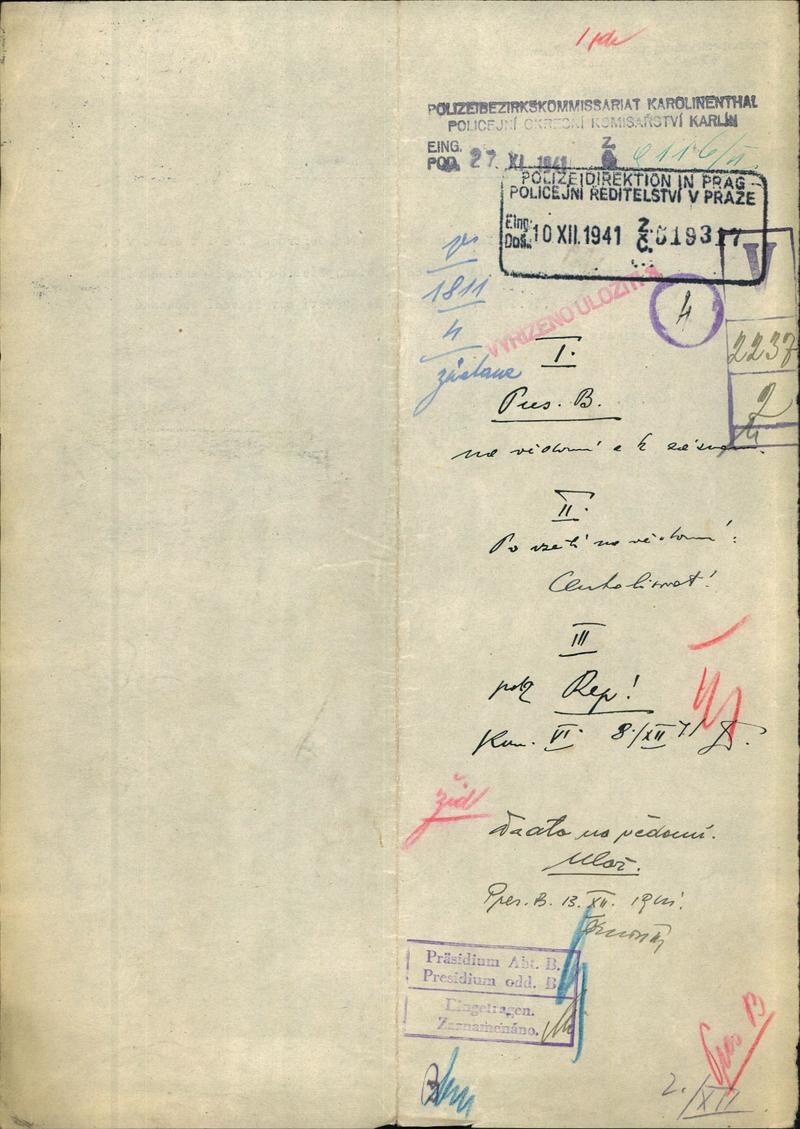 POLIZEIBEZIRKSKOMMISSARIAT KAROLINENTHAL
POLICEJNÍ OKRESNÍ KOMISAŘSTVÍ KARLÍN
EING.
POD. 27. XI. 1941 Z. Č.
POLIZEIDIREKTION IN PRAG
POLICEJNÍ ŘEDITELSTVÍ V PRAZE
Eing.
Doš. 10 XII. 1941 Z. Č.
V
1811
4
4
zůstane
VYŘÍZENO ULOŽITI
2237
2
I.
Pres. B.
na vědomí a k
II.
Po vzetí na vědomí:
III
Rep!
Kom. VI. 8./XII 41
žid
Vzato na vědomí.
Ulož.
Pres. B. 13. XII. 1941.
Präsidium Abt. B.
Presidium odd. B.
Eingetragen.
Zaznamenáno.
Pres B
2./XII